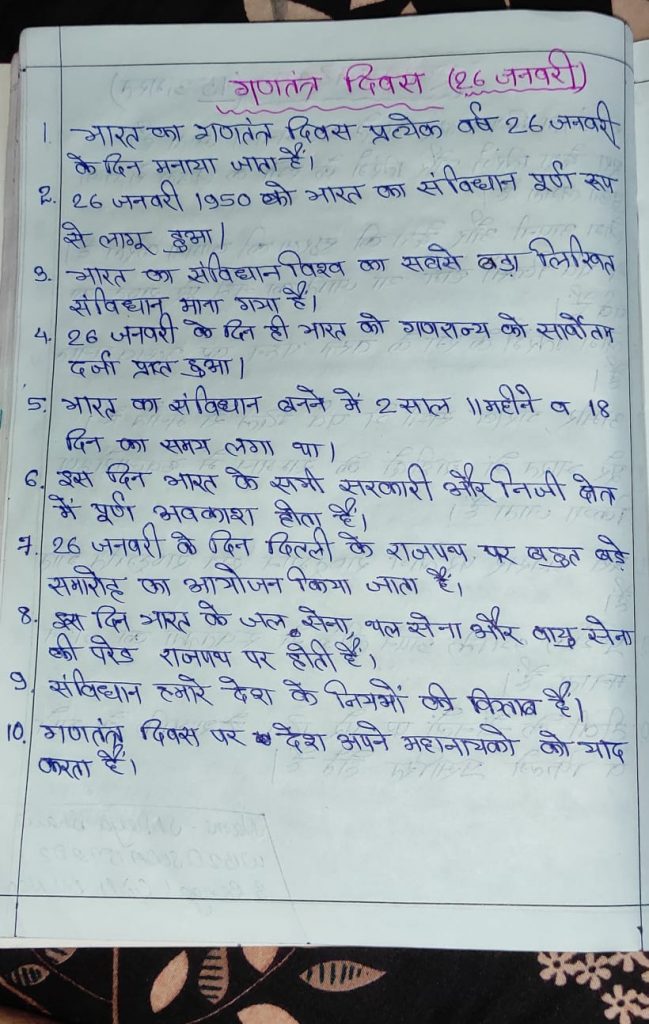 गणतंत्र दिवस (26 जनवरी)
1. भारत का गणतंत्र दिवस प्रत्येक वर्ष 26 जनवरी
के दिन मनाया जाता हैं।
2. 26 जनवरी 1950 को भारत का संविधान पूर्ण रूप
से लागू हुआ।
3. भारत का संविधान विश्व का सबसे बड़ा लिखित
संविधान माना गया हैं।
4. 26 जनवरी के दिन ही भारत को गणराज्य को
दर्जा प्राप्त हुआ।
5. भारत का संविधान बनने में 2 साल 11 महीने व 18
दिन का समय लगा था।
6. इस दिन भारत के सभी सरकारी और निजी क्षेत्र
में पूर्ण अवकाश होता हैं।
7. 26 जनवरी के दिन दिल्ली के राजपथ पर बहुत बड़े
समारोह का आयोजन किया जाता हैं।
8. इस दिन भारत के जल सेना, थल सेना और वायु सेना
की परेड राजपथ पर होती हैं।
9. संविधान हमारे देश के नियमों की किताब हैं।
10. गणतंत्र दिवस पर देश अपने महानायको को याद
करता हैं।